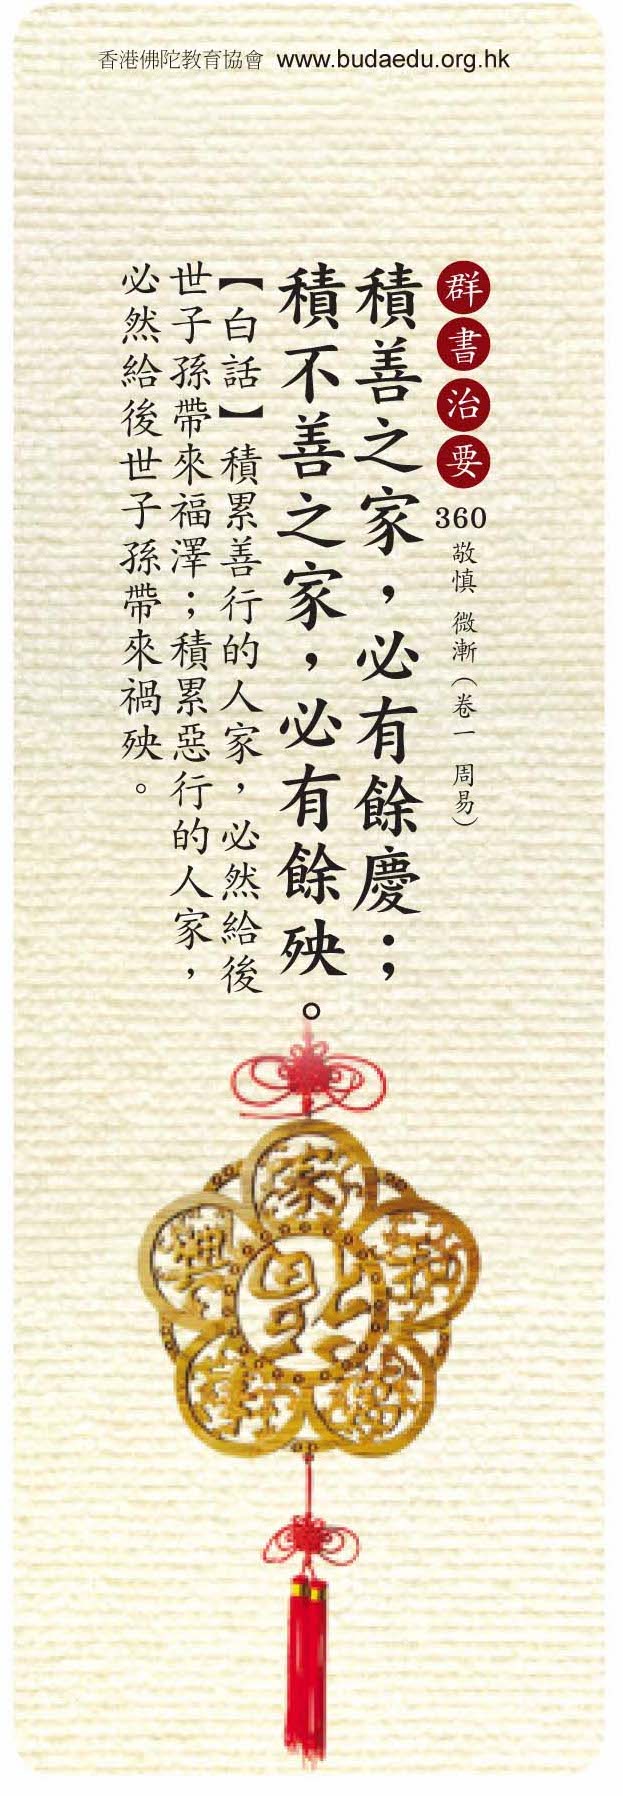 香港佛陀教育協會 www.budaedu.org.hk
群書治要 360 敬慎 微漸（卷一 周易）
積善之家，必有餘慶；
積不善之家，必有餘殃。
【白話】積累善行的人家，必然給後
世子孫帶來福澤；積累惡行的人家，
必然給後世子孫帶來禍殃。
家
興